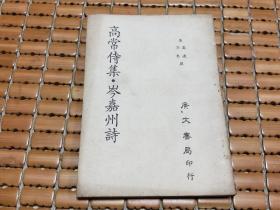 高常侍集·岑嘉州詩
广文書局印行